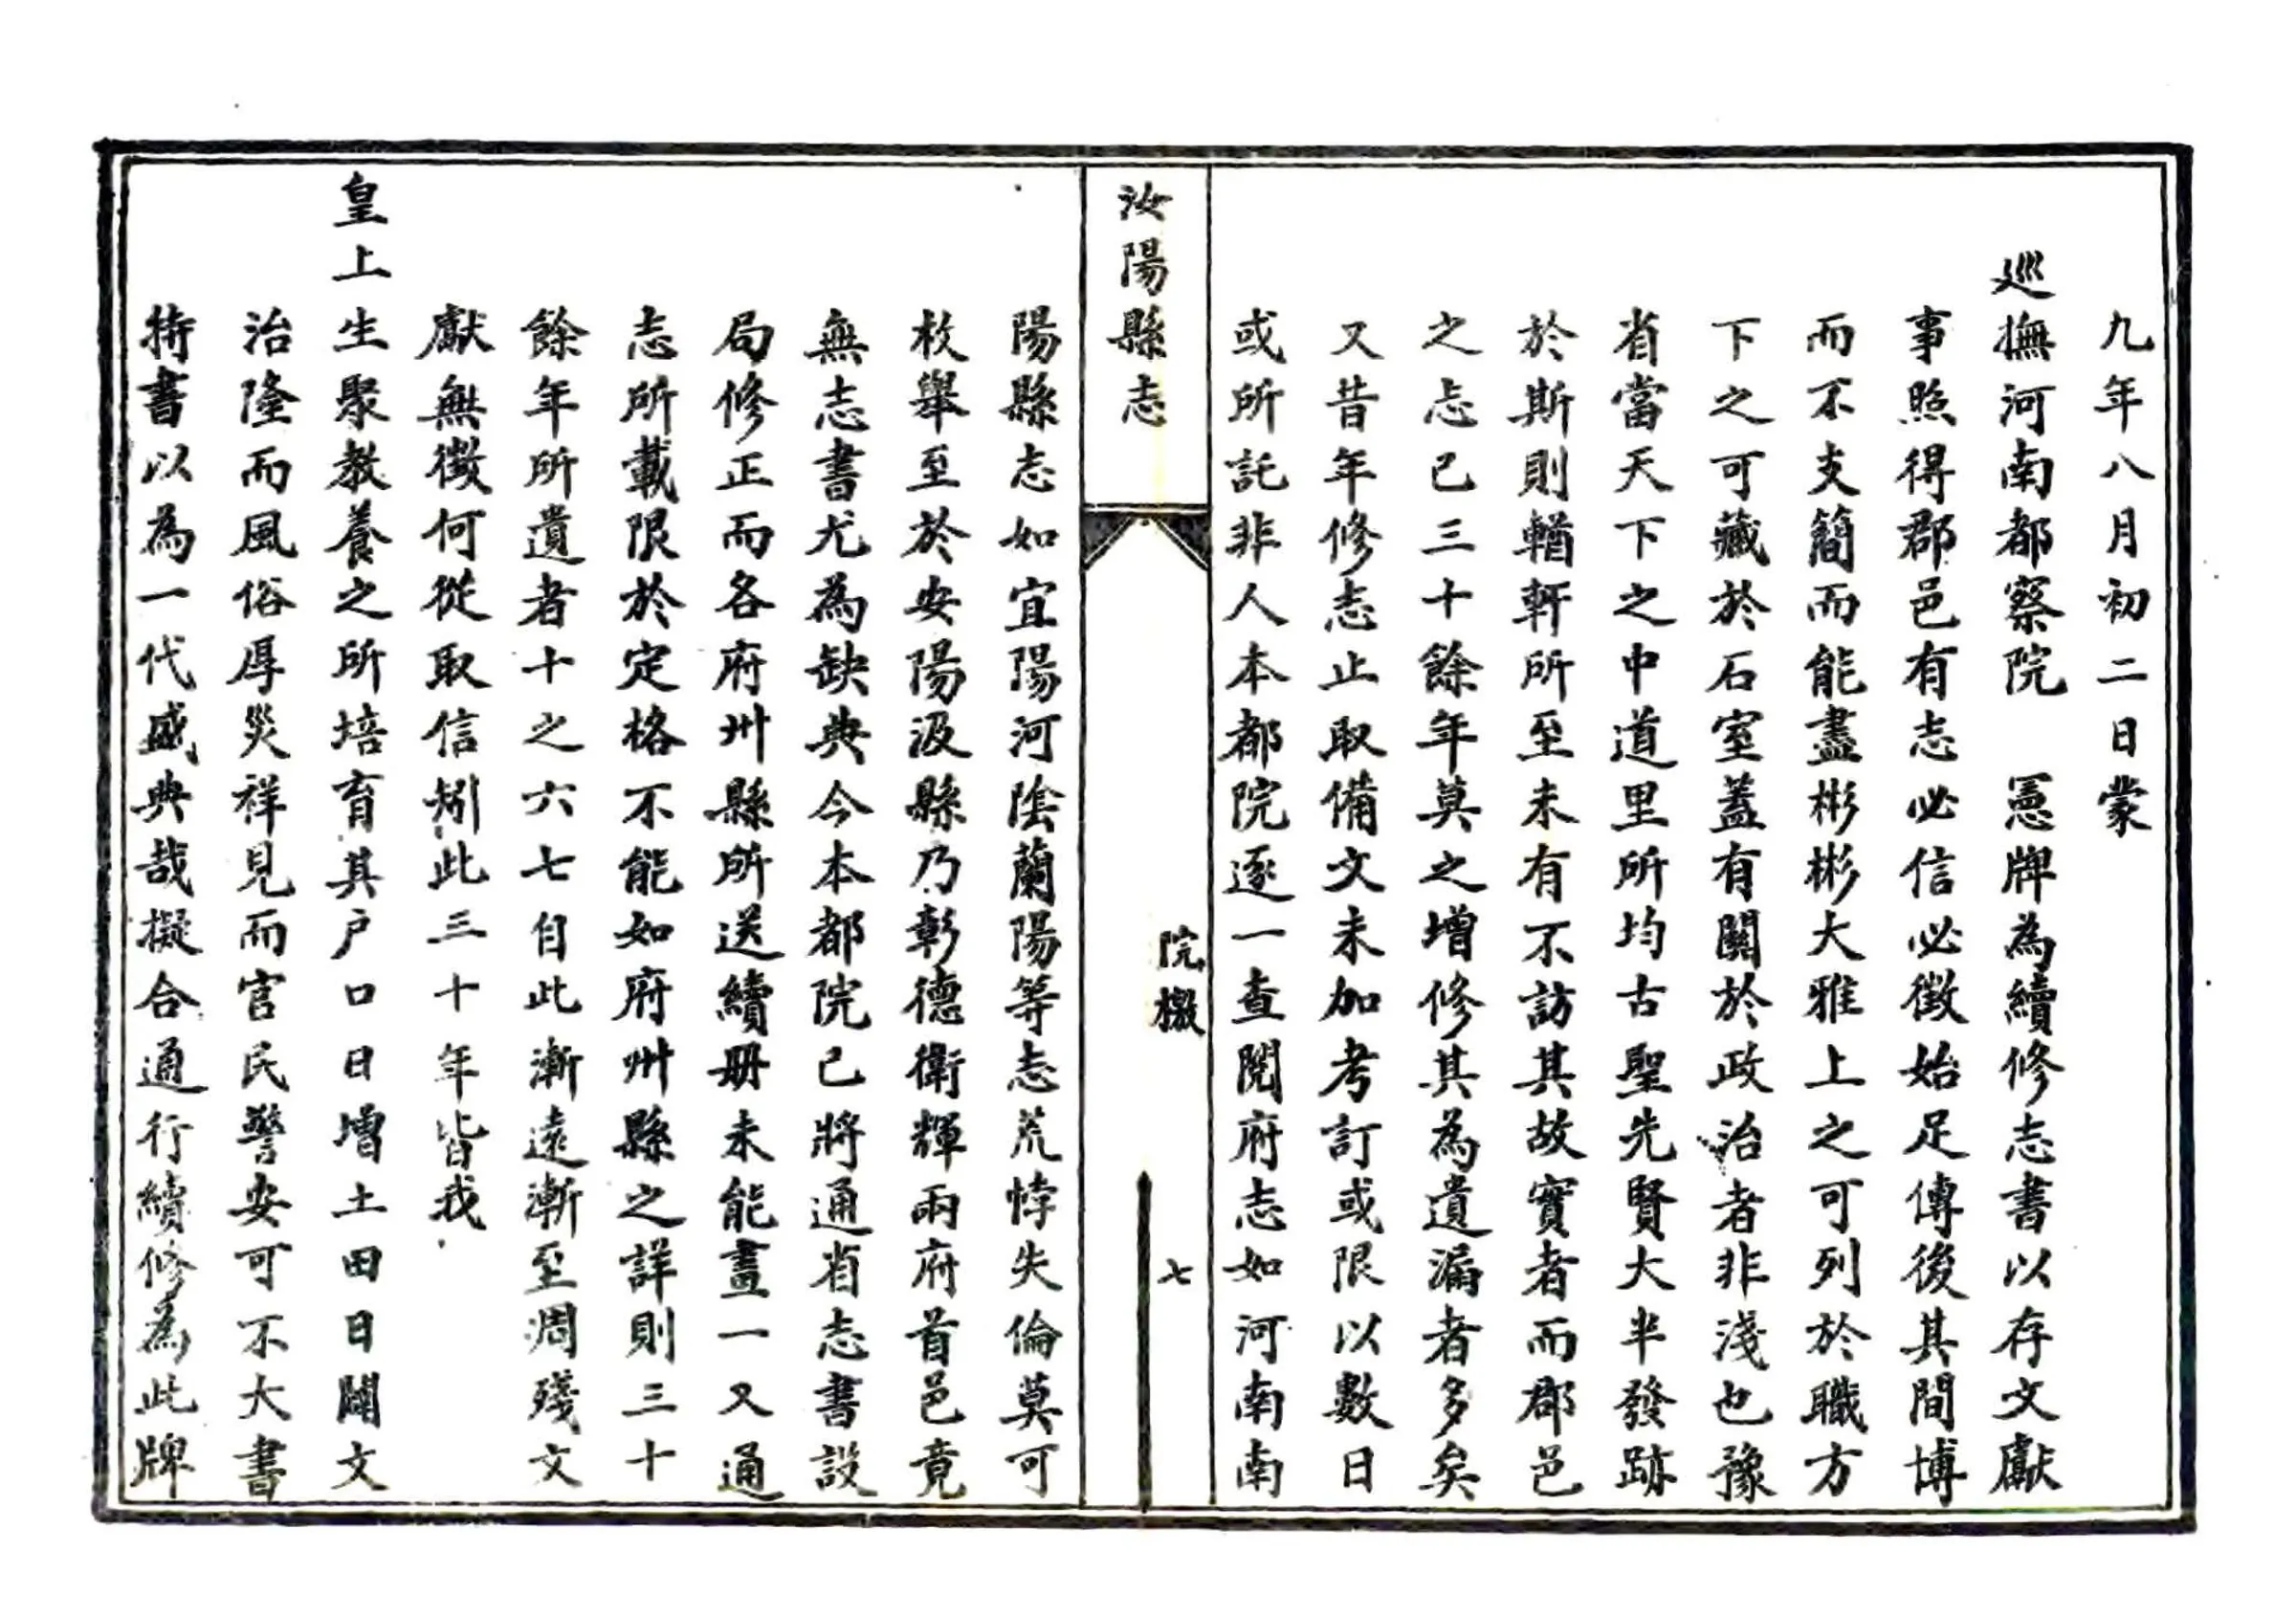 九年八月初二日蒙
巡撫河南都察院　憲牌為續修志書以存文獻
事照得郡邑有志必信必徵始足傳後其間博
而不支簡而能盡彬彬大雅上之可列於職方
下之可藏於石室蓋有關於政治者非淺也豫
省當天下之中道里所均古聖先賢大半發跡
於斯則輶軒所至未有不訪其故實者而郡邑
之志已三十餘年莫之增修其為遺漏者多矣
又昔年修志止取備文未加考訂或限以數日
或所託非人本都院逐一查閱府志如河南南
汝陽縣志
院檄
七
陽縣志如宜陽河陰蘭陽等志荒悖失倫莫可
枚舉至於安陽汲縣乃彰德衛輝兩府首邑竟
無志書尤為缺典今本都院已將通省志書設
局修正而各府州縣所送續册未能畫一又通
志所載限於定格不能如府州縣之詳則三十
餘年所遺者十之六七自此漸遠漸至凋殘文
獻無徵何從取信矧此三十年皆我
皇上生聚教養之所培育其户口日增土田日闢文
治隆而風俗厚災祥見而官民警安可不大書
特書以為一代盛典哉擬合通行續修為此牌